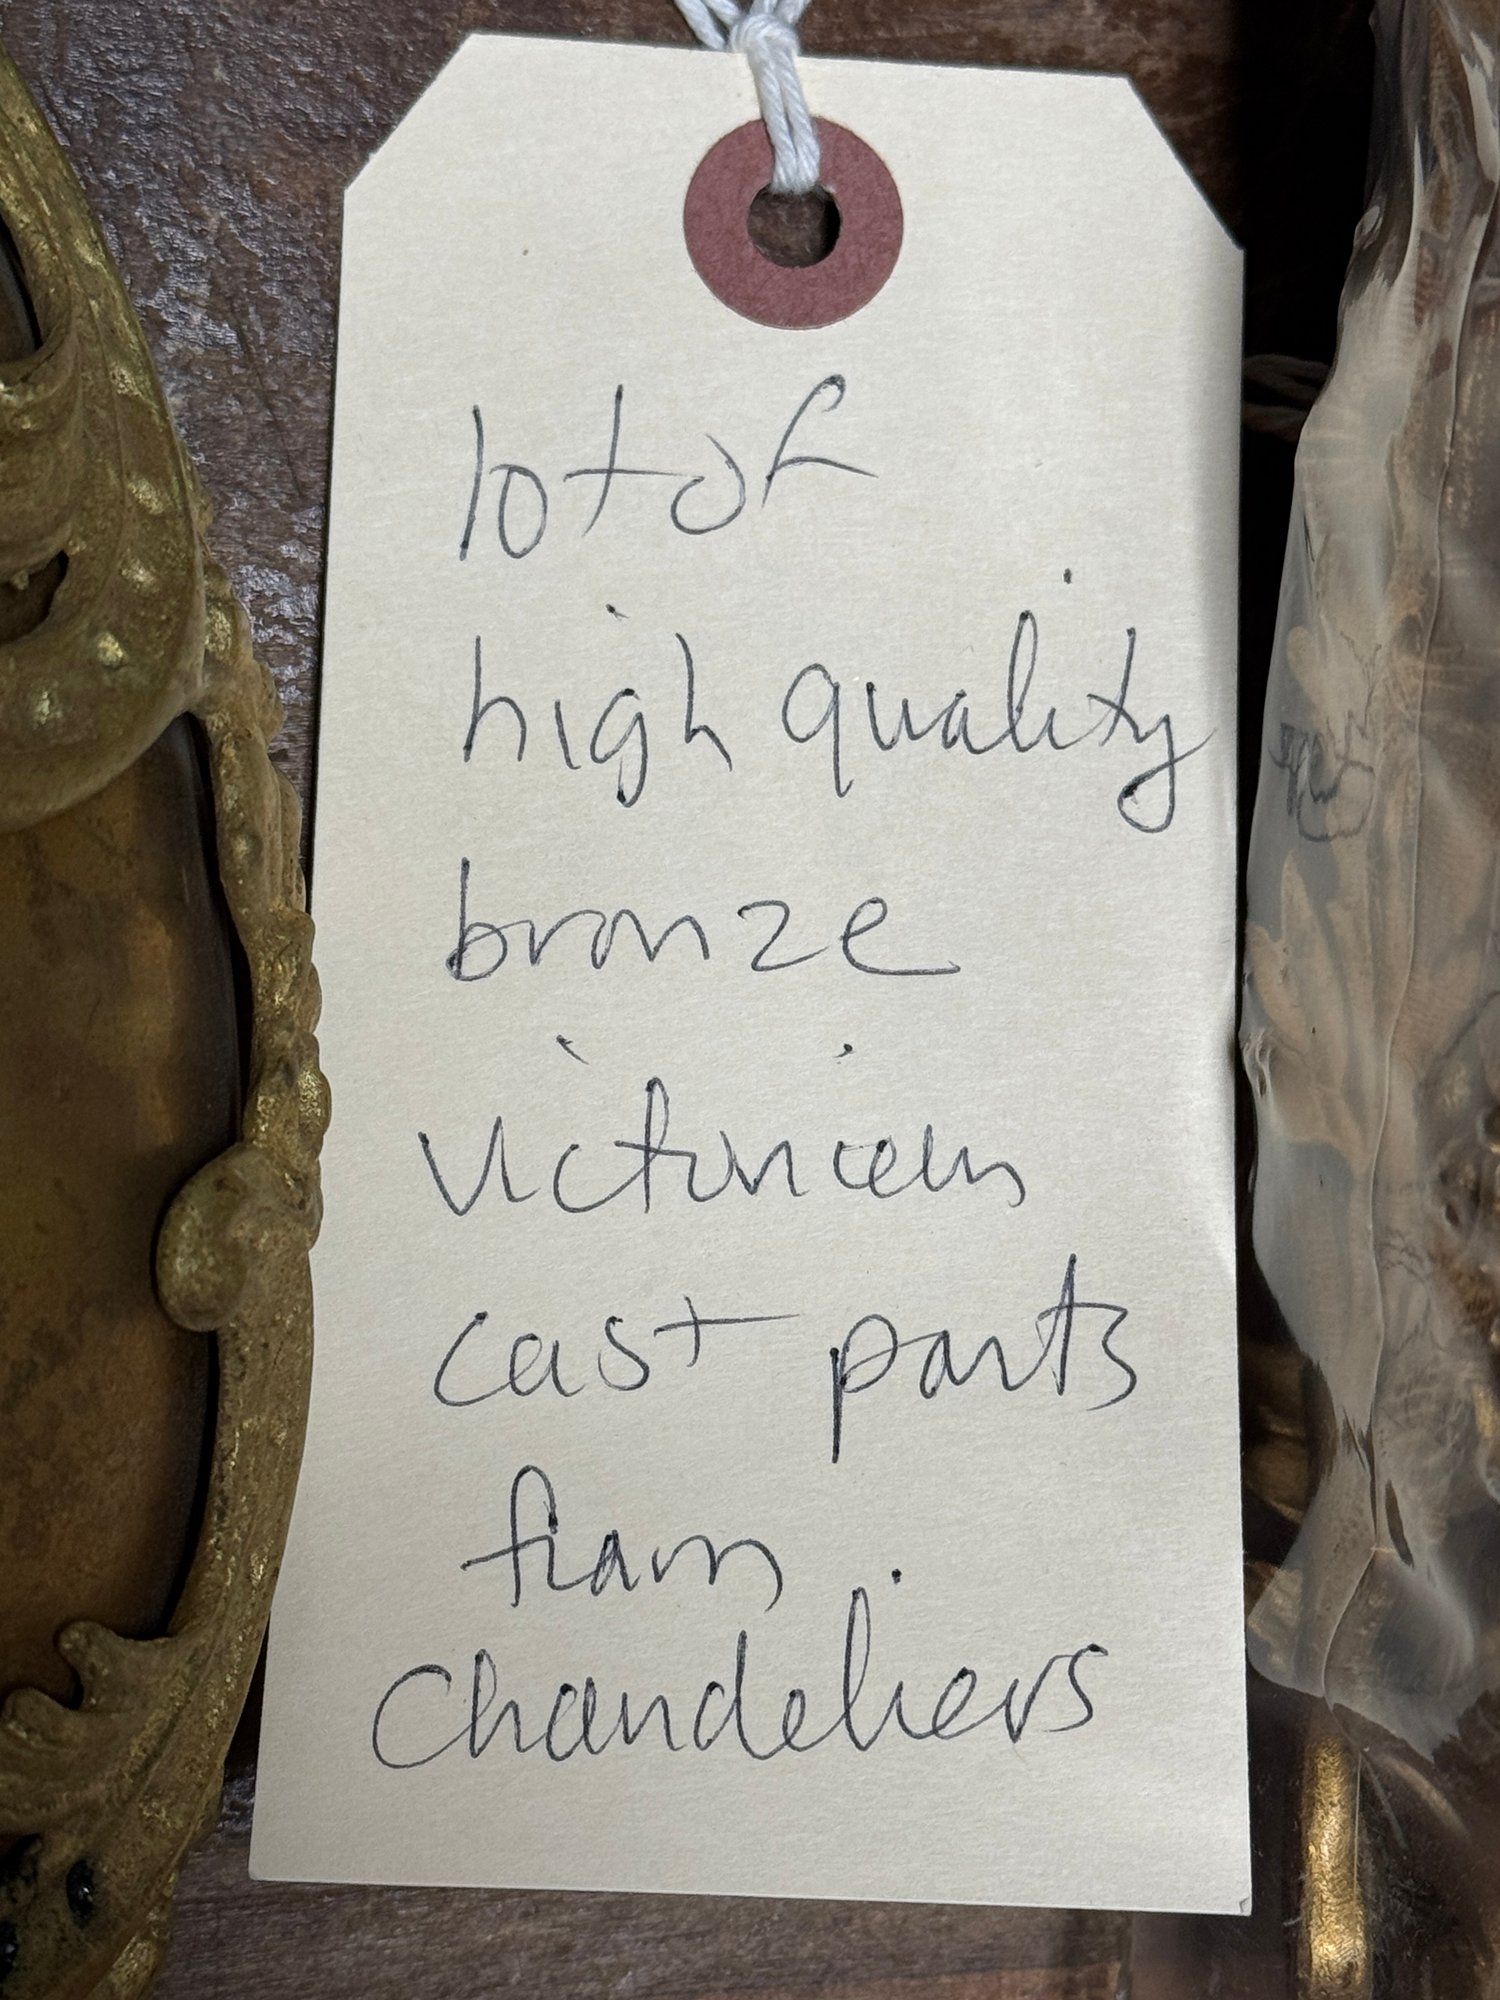 lot of
high quality
bronze
victorian
cast parts
from
Chandeliers